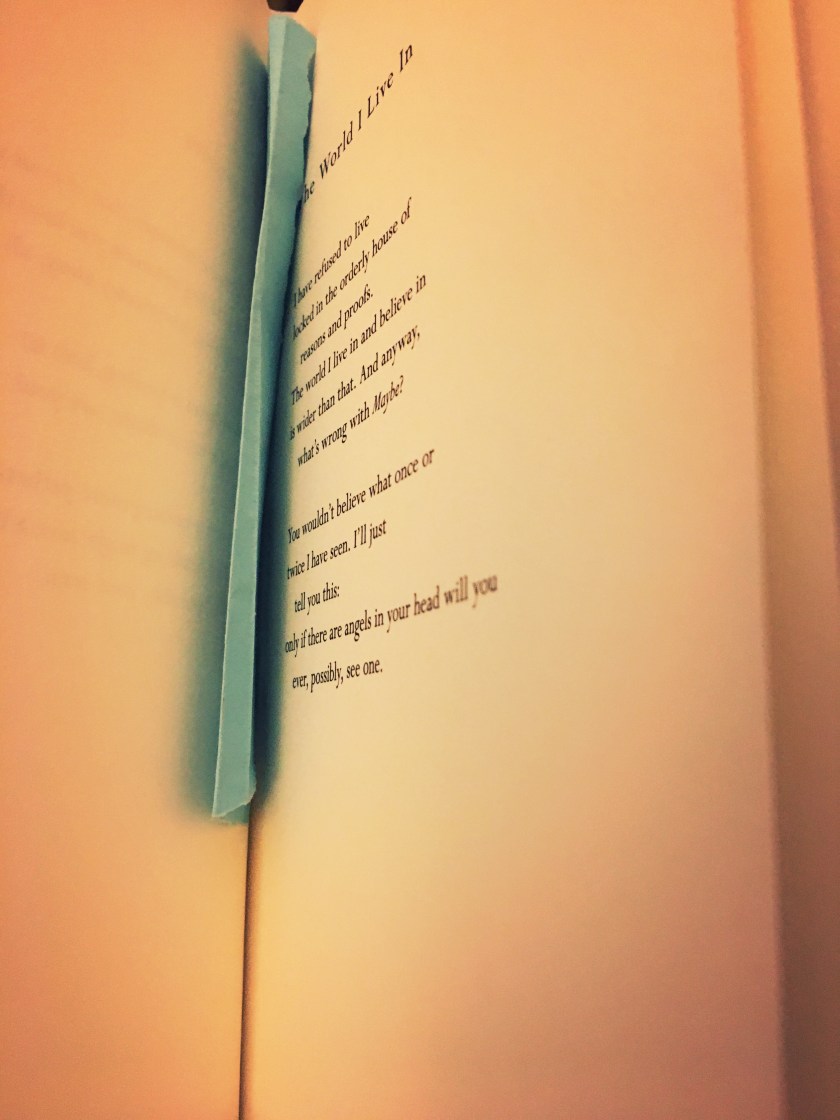 The World I Live In
I have refused to live
locked in the orderly house of
reasons and proofs.
The world I live in and believe in
is wider than that. And anyway,
what's wrong with Maybe?
You wouldn't believe what once or
twice I have seen. I'll just
tell you this:
only if there are angels in your head will you
ever, possibly, see one.